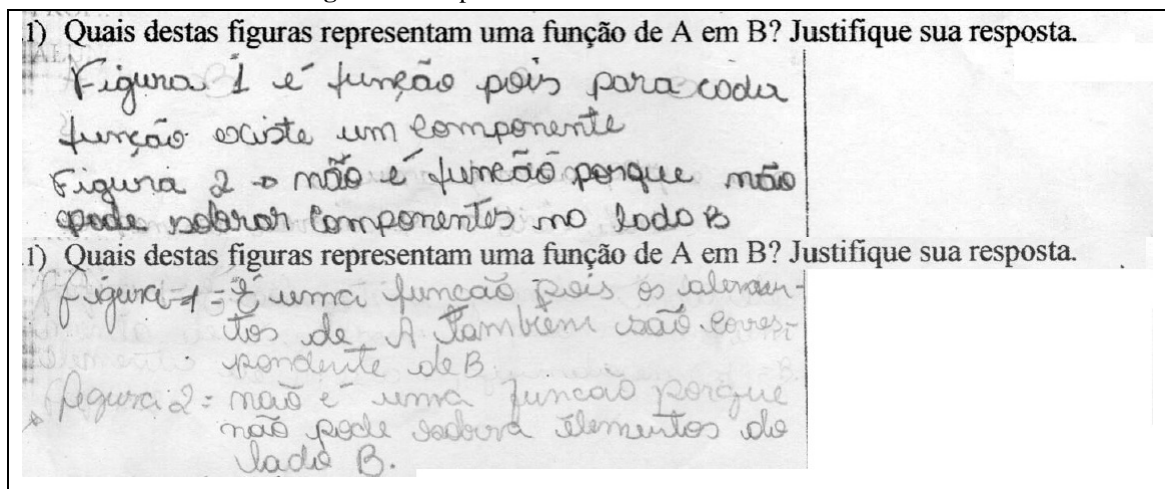 1) Quais destas figuras representam uma função de A em B? Justifique sua resposta.
Figura 1 é função pois para cada
função existe um componente
Figura 2 → não é função porque não
pode sobrar componentes no lado B
1) Quais destas figuras representam uma função de A em B? Justifique sua resposta.
Figura-1 = É uma função pois os
tos de A também são corres-
pondente de B
figura 2: não é uma funcao porque
não pode sobra elementos do
lado B.